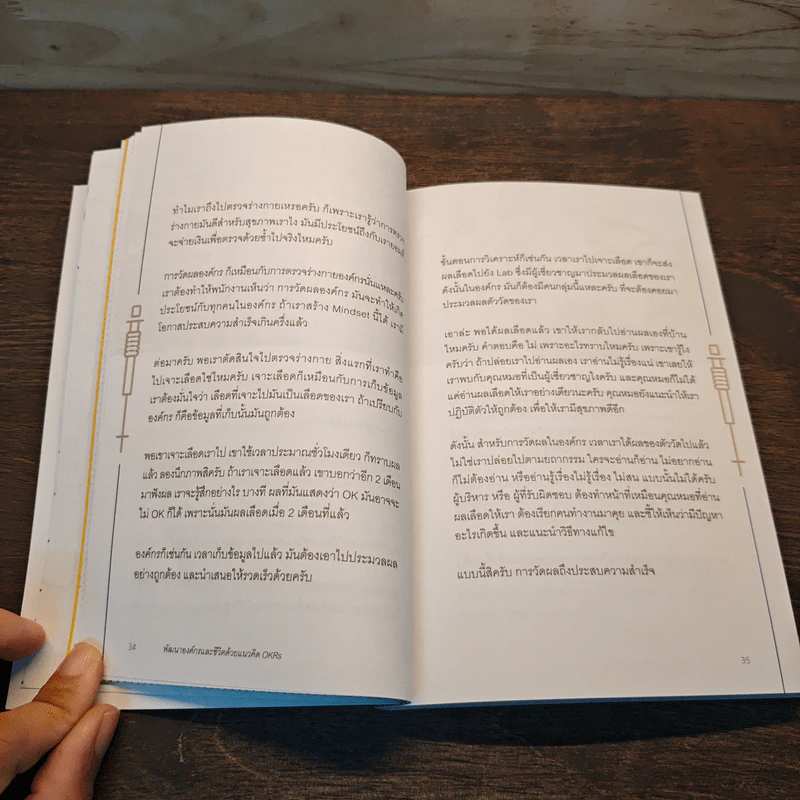 ทำไมเราถึงไปตรวจร่างกายเหรอครับ ก็เพราะเรารู้ว่าการตรวจ
ร่างกายมันดีสำหรับสุขภาพเราไง มันมีประโยชน์ถึงกับเรายอมที่
จะจ่ายเงินเพื่อตรวจด้วยซ้ำไปจริงไหมครับ
การวัดผลองค์กร ก็เหมือนกับการตรวจร่างกายองค์กรนั่นแหละครับ
เราต้องทำให้พนักงานเห็นว่า การวัดผลองค์กร มันจะทำให้เกิด
ประโยชน์กับทุกคนในองค์กร ถ้าเราสร้าง Mindset นี้ได้ เรามี
โอกาสประสบความสำเร็จเกินครึ่งแล้ว
ต่อมาครับ พอเราตัดสินใจไปตรวจร่างกาย สิ่งแรกที่เราทำคือ
ไปเจาะเลือดใช่ไหมครับ เจาะเลือดก็เหมือนกับการเก็บข้อมูล
เราต้องมั่นใจว่า เลือดที่เจาะไปมันเป็นเลือดของเรา ถ้าเปรียบกับ
องค์กร ก็คือข้อมูลที่เก็บนั้นมันถูกต้อง
พอเขาเจาะเลือดเราไป เขาใช้เวลาประมาณชั่วโมงเดียว ก็ทราบผล
แล้ว ลองนึกภาพสิครับ ถ้าเราเจาะเลือดแล้ว เขาบอกว่าอีก 2 เดือน
มาฟังผล เราจะรู้สึกอย่างไร บางที ผลที่มันแสดงว่า OK มันอาจจะ
ไม่ OK ก็ได้ เพราะนั่นมันผลเลือดเมื่อ 2 เดือนที่แล้ว
องค์กรก็เช่นกัน เวลาเก็บข้อมูลไปแล้ว มันต้องเอาไปประมวลผล
อย่างถูกต้อง และนำเสนอให้รวดเร็วด้วยครับ
34 พัฒนาองค์กรและชีวิตด้วยแนวคิด OKRs
ขั้นตอนการวิเคราะห์ก็เช่นกัน เวลาเราไปเจาะเลือด เขาก็จะส่ง
ผลเลือดไปยัง Lab ซึ่งมีผู้เชี่ยวชาญมาประมวลผลเลือดของเรา
ดังนั้นในองค์กร มันก็ต้องมีคนกลุ่มนี้แหละครับ ที่จะต้องคอยมา
ประมวลผลตัววัดของเรา
เอาล่ะ พอได้ผลเลือดแล้ว เขาให้เรากลับไปอ่านผลเองที่บ้าน
ไหมครับ คำตอบคือ ไม่ เพราะอะไรทราบไหมครับ เพราะเขารู้ไง
ครับว่า ถ้าปล่อยเราไปอ่านผลเอง เราอ่านไม่รู้เรื่องแน่ เขาเลยให้
เราพบกับคุณหมอที่เป็นผู้เชี่ยวชาญไงครับ และคุณหมอก็ไม่ได้
แค่อ่านผลเลือดให้เราอย่างเดียวนะครับ คุณหมอยังแนะนำให้เรา
ปฏิบัติตัวให้ถูกต้อง เพื่อให้เรามีสุขภาพดีอีก
ดังนั้น สำหรับการวัดผลในองค์กร เวลาเราได้ผลของตัววัดไปแล้ว
ไม่ใช่เราปล่อยไปตามยถากรรม ใครจะอ่านก็อ่าน ไม่อยากอ่าน
ก็ไม่ต้องอ่าน หรืออ่านรู้เรื่องไม่รู้เรื่อง ไม่สน แบบนั้นไม่ได้ครับ
ผู้บริหาร หรือ ผู้ที่รับผิดชอบ ต้องทำหน้าที่เหมือนคุณหมอที่อ่าน
ผลเลือดให้เรา ต้องเรียกคนทำงานมาคุย และชี้ให้เห็นว่ามีปัญหา
อะไรเกิดขึ้น และแนะนำวิธีทางแก้ไข
แบบนี้สิครับ การวัดผลถึงประสบความสำเร็จ
35